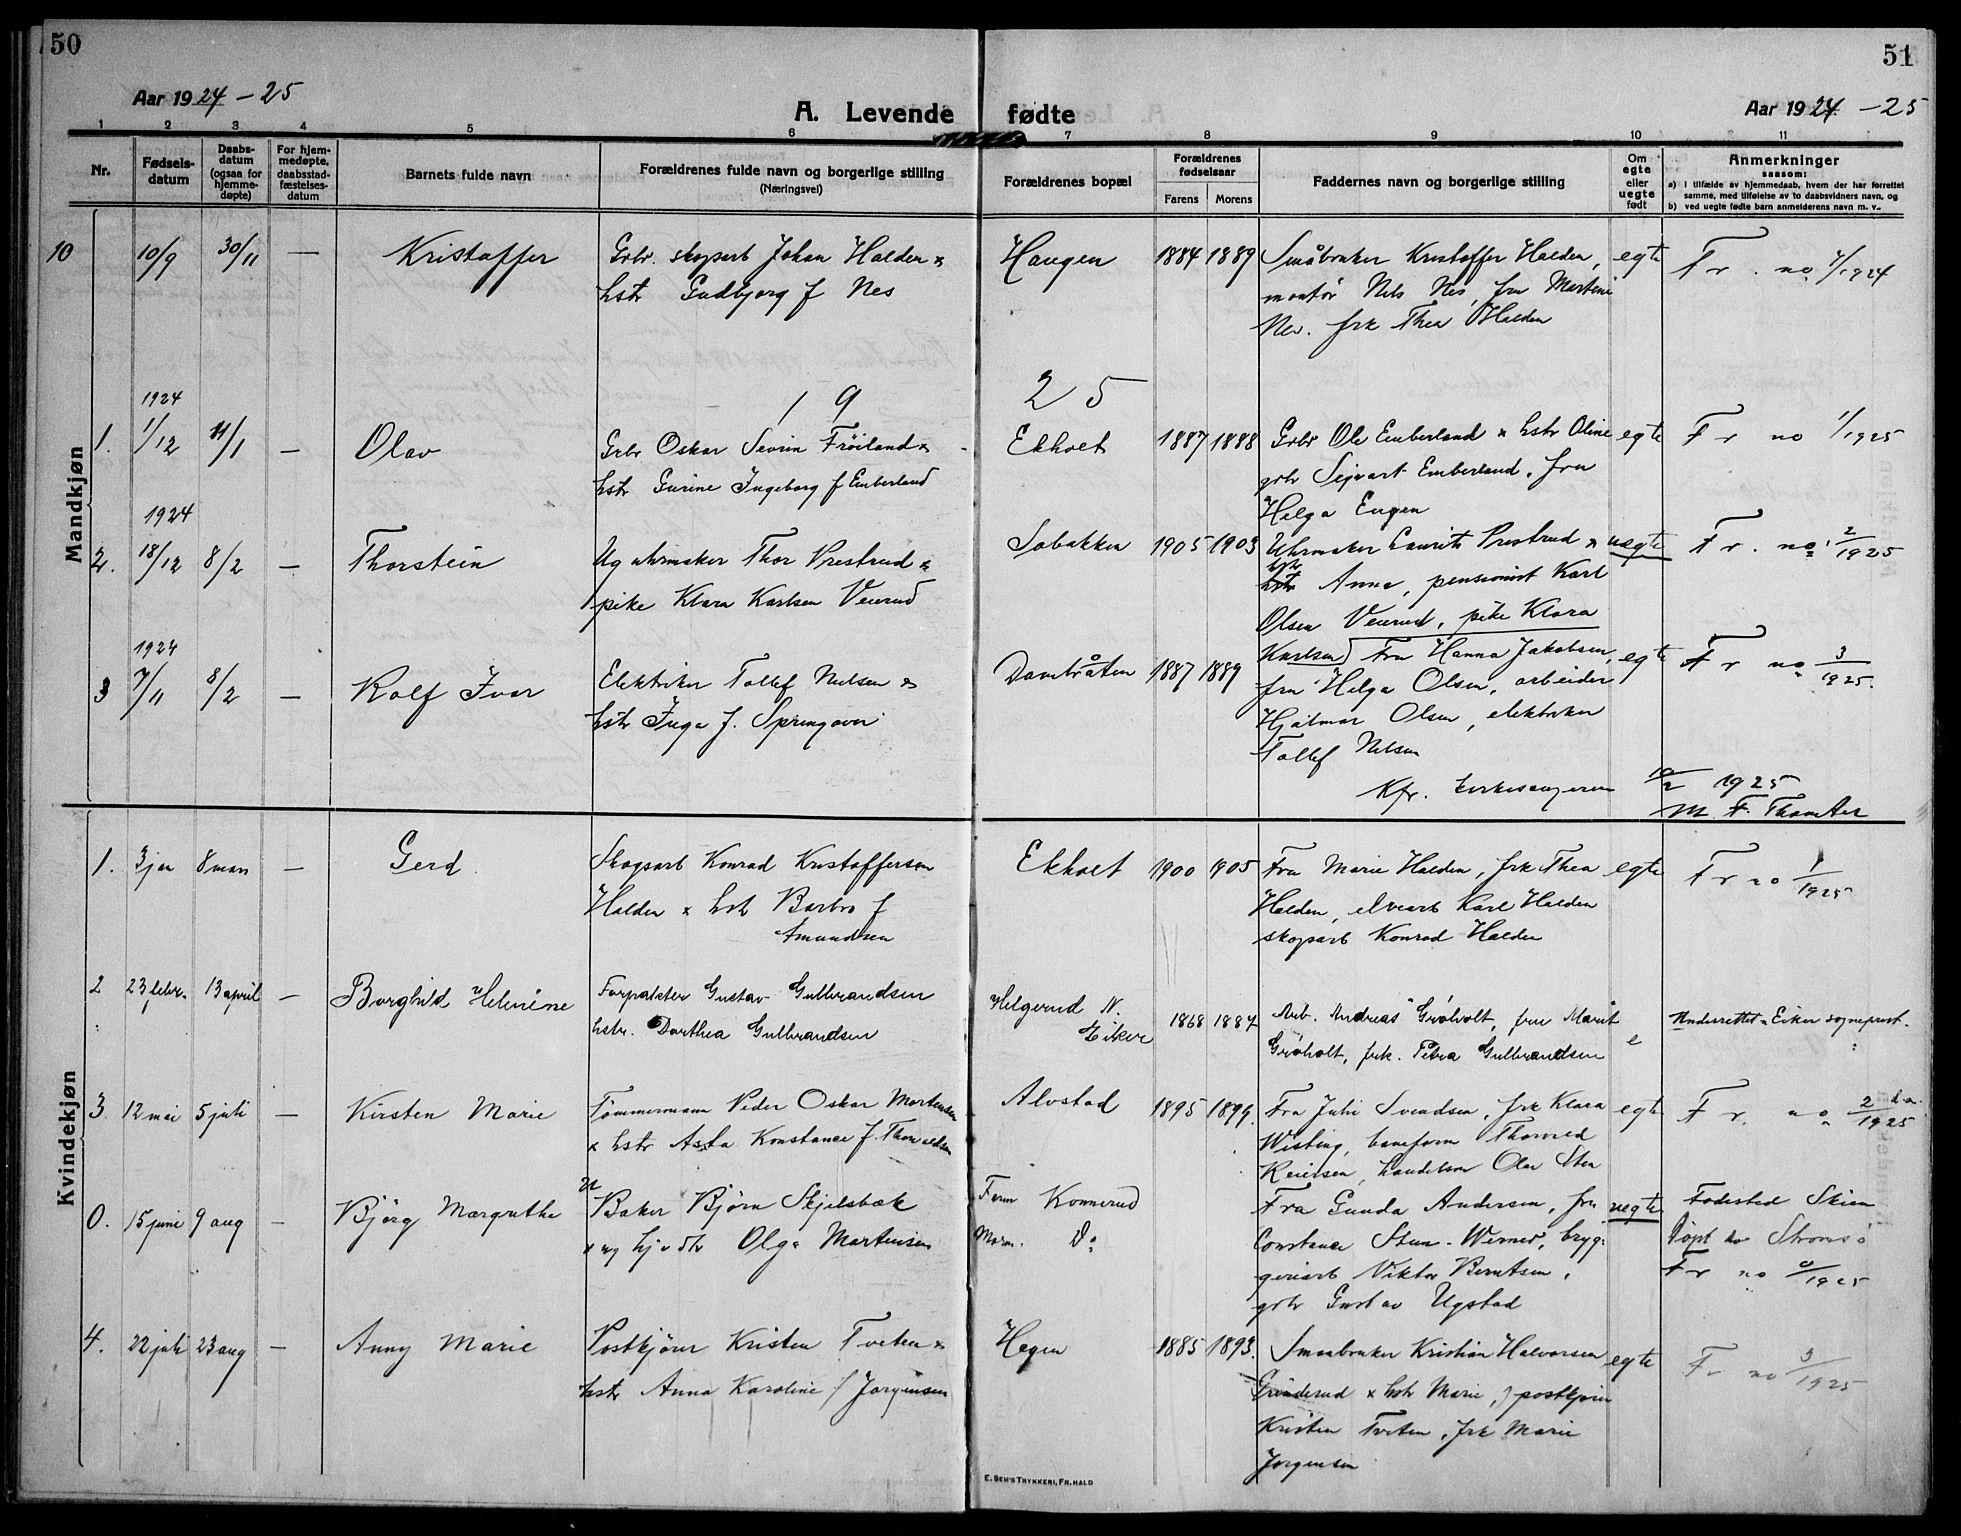 50
51
Aar 1924 - 25
A. Levende fødte
Aar 1924 - 25
1 2 3 4 5 6 7 8 9 10 11
Nr.
Fødsels-
datum
Daabs-
datum
(ogsaa for
hjemme-
døpte)
For hjem-
medøpte,
daabsstad-
fæstelses-
datum
Barnets fulde navn
Forældrenes fulde navn og borgerlige stilling
(Næringsvei)
Forældrenes bopæl
Forældrenes
fødselsaar
Farens Morens
Faddernes navn og borgerlige stilling
Om
egte
eller
uegte
født
Anmerkninger
saasom:
a) I tilfælde av hjemmedaab, hvem der har forrettet
samme, med tilføielse av to daabsvidners navn, og
b) ved uegte fødte barn anmelderens navn m. v..
Mandkjøn
10 10/9 30/11 — Kristoffer
Grbr. skogsarb Johan Halden &
hstr Gudbjørg f Nes
Haugen 1884 1889
Småbruker Kristoffer Halden,
montør Nels Nes, fru Martini
Nes. frk Thea Halden
egte
Fr. no 7/1924
19 25
1924
1. 1/12 11/1 — Olav
Grbr Oskar Severin Frøiland &
hstr Gurine Ingeborg f Emberland
Ekholt 1887 1888
Grbr Ole Emberland & hstr Oline
grbr Sigvart Emberland, fru
Helga Engen
egte
Fr no 1/1925
1924
2. 18/12 8/2 — Thorstein
Ug uhrmaker Thor Prestrud &
pike Klara Karlsen Veierud
Sobakken 1905 1903
Uhrmaker Laurits Prestrud &
hstr Anna, pensionist Karl
Olsen Veierud, pike Klara
Karlsen
uegte
Fr. no. 2/1925
1924
3 7/11 8/2 — Rolf Ivar
Elektriker Tollef Nielsen &
hstr Inga f. Springover
Dambråten 1887 1889
Fru Hanna Jakobsen,
fru Helga Olsen, arbeider
Hjalmar Olsen, elektriker
Tollef Nelsen
egte
Fr no 3/1925.
Kfr. kirkesangeren 10/2 1925
M. F. Thomter
Kvindekjøn
1. 3 jan 8 mars — Gerd
Skogsarb Konrad Kristoffersen
Halden & hstr Barbro f
Amundsen
Ekholt 1900 1905
Fru Marie Halden, frk Thea
Halden, elvearb Karl Halden
skogsarb Konrad Halden
egte
Fr no 1/1925
2 23 febr. 13 april — Borghild Helmine
Forpakter Gustav Gulbrandsen
hstr. Dorthea Gulbrandsen
Helgerud N.
Eiker
1868 1887
Arb. Andreas Grøholt, fru Marit
Grøholt, frk. Petra Gulbrandsen
e
Underrettet Eiker sogneprest.
3. 12 mai 5 juli — Kirsten Marie
Tømmermann Peder Oskar Mortensen
& hstr Asta Konstance f. Thorvaldsen
Alvstad 1895 1899.
Fru Julie Svendsen, frk Klara
Wisting, baneform Thorvald
Reiersen, handelsm Olav Sten
egte
Fr. no. 2/1925
0. 15 juni 9 aug — Bjørg Margrethe
U
Baker Bjørn Skjelsbæk
& ug hjv dtr Olga Martensen
Farm Konnerud
Morm. Do
Fra Gunda Andersen, fru
Constance Steen-Werner, bryg-
geriarb Viktor Berntsen,
grbr Gustav Ugstad
uegte
Fødested Skien
Døpt av Strømsø
Fr no 0/1925
4. 22 juli 23 aug — Anny Marie
Postkjører Kristen Tveten &
hstr Anna Karoline f Jørgensen
Hagen 1885 1893.
Smaabruker Kristian Halvorsen
Grinderud & hstr Marie, postkjører
Kristen Tveten, frk Marie
Jørgensen
egte
Fr no 3/1925
E. SEM'S TRYKKERI, FR.HALD